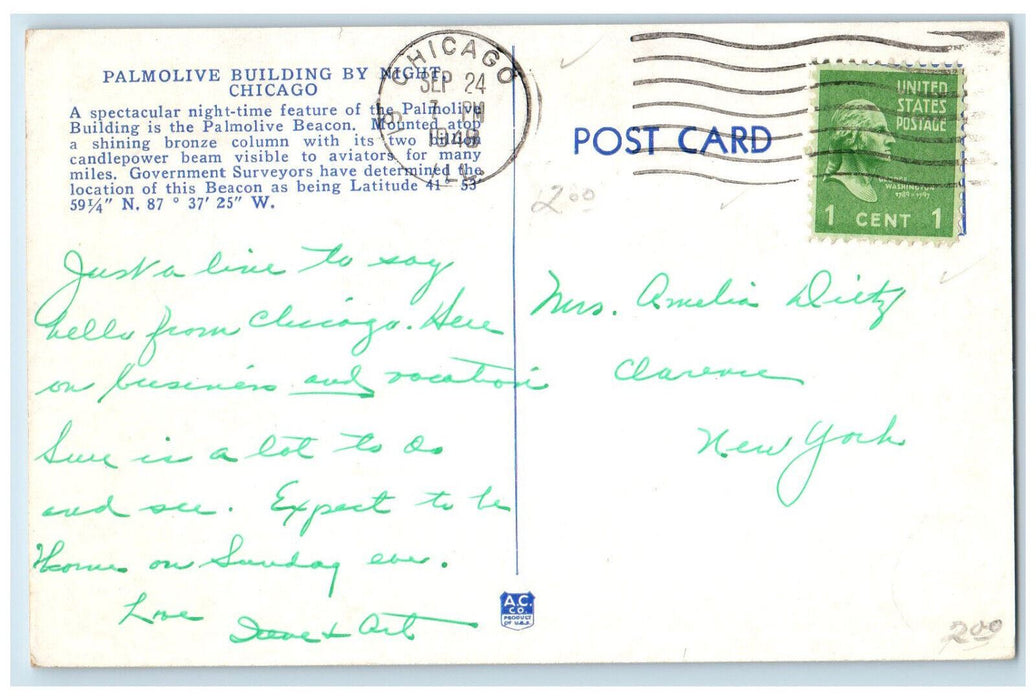 PALMOLIVE BUILDING BY NIGHT,
CHICAGO
A spectacular night-time feature of the Palmolive
Building is the Palmolive Beacon. Mounted atop
a shining bronze column with its two billion
candlepower beam visible to aviators for many
miles. Government Surveyors have determined the
location of this Beacon as being Latitude 41° 53'
59¼" N. 87 ° 37' 25" W.
CHICAGO
SEP 24
7 PM
ILL.
POST CARD
UNITED
STATES
POSTAGE
GEORGE
WASHINGTON
1789-1797
1 CENT 1
2.00
Just a line to say
hello from Chicago. Here
on business and vacation
Sure is a lot to do
and see. Expect to be
Home on Sunday eve.
Love
& Art
Mrs. Amelia Dietz
Clarence
New York
A.C.
CO.
PRODUCT
OF U.S.A.
2.00